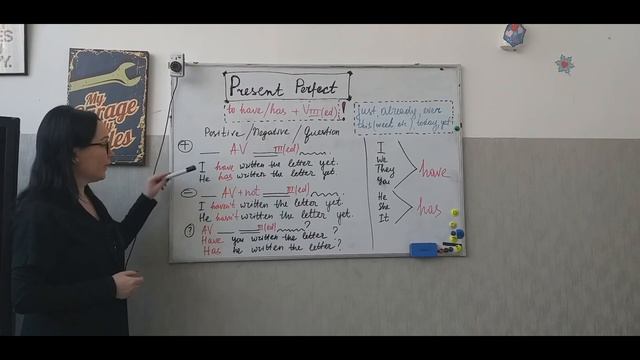 Present Perfect
to have/has + V III(ed) !
just already ever
this (week etc) today, yet
Positive / Negative / Question
+ __ AV __ III(ed) ~~~.
I have written the letter yet.
He has written the letter yet.
- __ AV + not __ III(ed) ~~~.
I haven't written the letter yet.
He hasn't written the letter yet.
? AV __ __ III(ed) ~~~?
Have you written the letter ?
Has he written the letter?
I
We
They
You
have
He
She
It
has
My
Garage
Rules